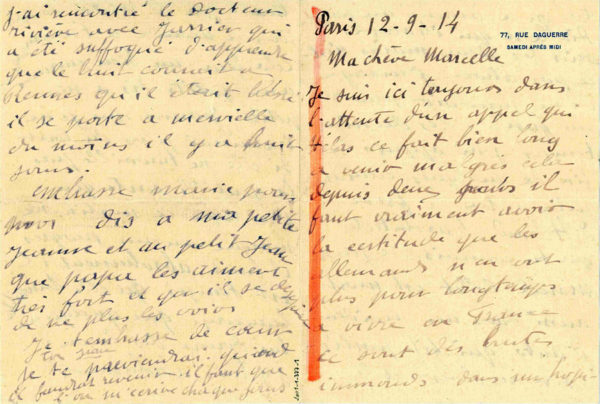 Paris 12-9-14
77, RUE DAGUERRE
SAMEDI APRÈS MIDI
Ma chère Marcelle
Je suis ici toujours dans
l'attente d'un appel qui
hélas ce fait bien long
a venir malgrés cela
depuis deux jours il
faut vraiment avoir
la certitude que les
allemands n'en ont
plus pour longtemps
a vivre en France
ce sont des brutes
immonds dans un
j'ai rencontré le docteur
rivière avec Jarrier qui
a été suffoqué d'apprendre
que le bruit courait a
Rennes qu'il était
il se porte a merveille
du moins il y a huit
jours.
embrasse marie pour
moi dis a ma petite
Jeanne et au petit Jean
que papa les aiment
très fort et qu'il se
de ne plus les voir
Je t'embrasse de cœur
ton Jean
je te previendrai quand
il faudra revenir il faut que
m'ecrive chaque jours